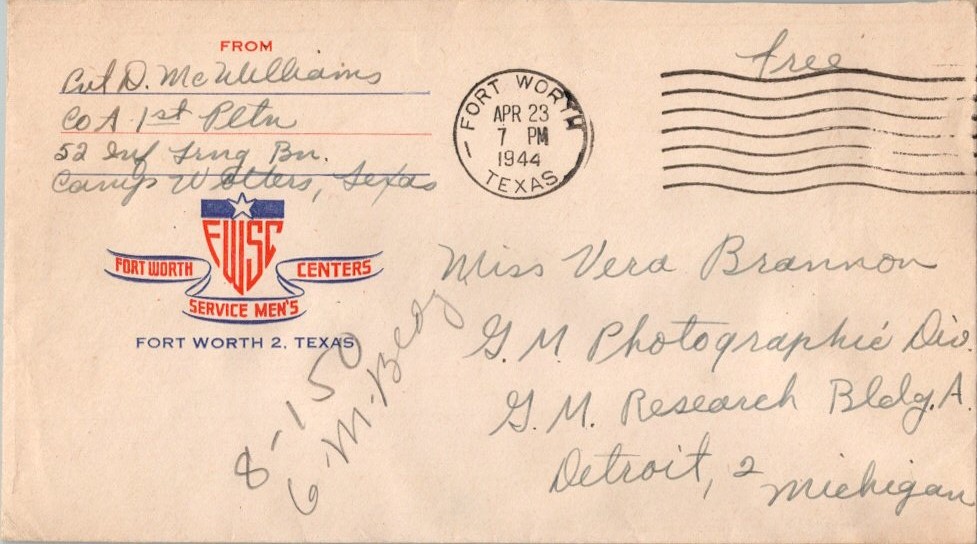 FROM
Pvt D. McWilliams
Co A 1st Pltn
52 Inf Trng Bn.
Camp Wolters, Texas
FWSC
FORT WORTH CENTERS
SERVICE MEN'S
FORT WORTH 2, TEXAS
FORT WORTH
APR 23
7 PM
1944
TEXAS
free
Miss Vera Brannon
G.M Photographic Div.
G.M. Research Bldg. A.
Detroit, 2
Michigan
8-150